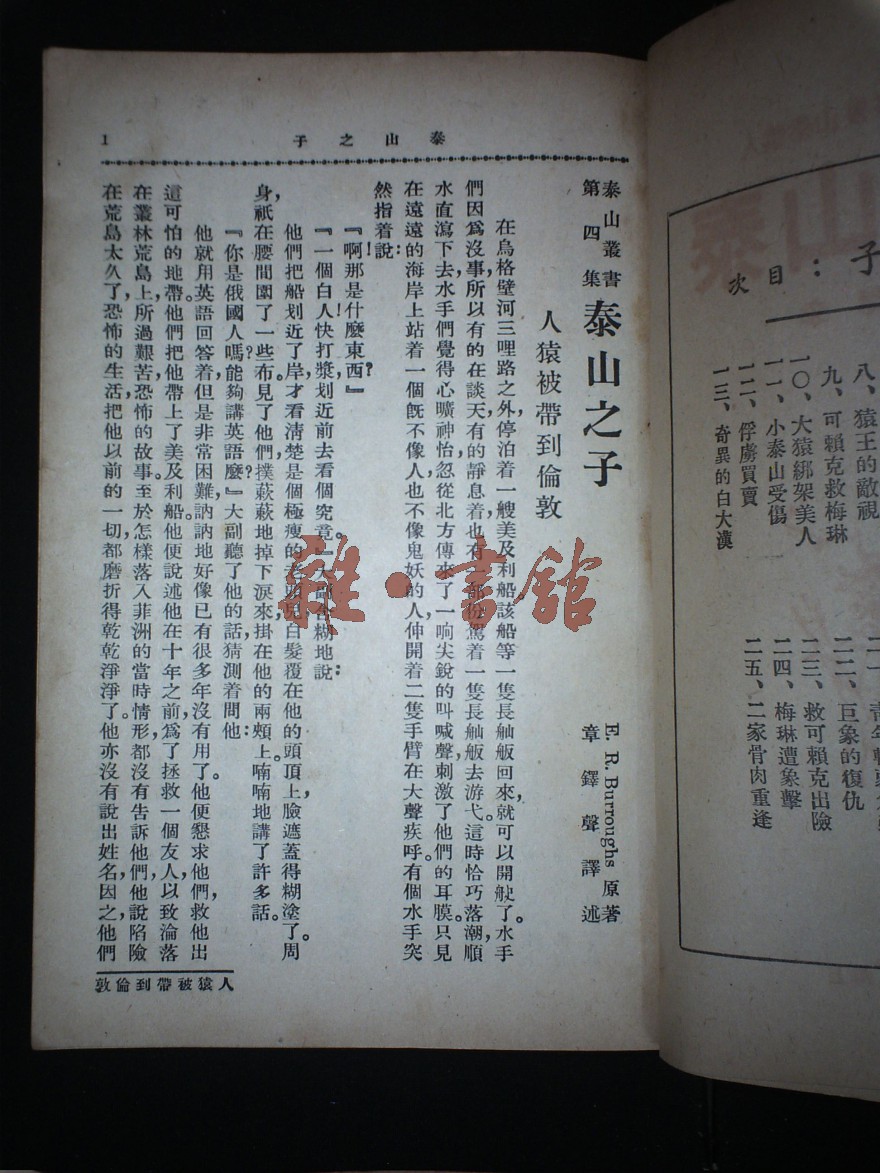 子：目次
八、猿王的敵視
九、可賴克救梅琳
一〇、大猿綁架美人
一一、小泰山受傷
一二、俘虜買賣
一三、奇異的白大漢
二二、巨象的復仇
二三、救可賴克出險
二四、梅琳遭象擊
二五、二家骨肉重逢
泰山之子
1
泰山叢書
第四集
泰山之子
E. R. Burroughs 原著
章鐸聲譯述
人猿被帶到倫敦
在烏格壁河三哩路之外，停泊着一艘美及利船該船等一隻長舢舨回來，就可以開駛了。水手
們因爲沒事，所以有的在談天有的靜息着，也有一部份駕着一隻長舢舨去游弋。這時恰巧落潮，順
水直瀉下去，水手們覺得心曠神怡，忽從北方傳來了一响尖銳的叫喊聲，刺激了他們的耳膜。只見
在遠遠的海岸上站着一個旣不像人，也不像鬼妖的人，伸開着二隻手臂在大聲疾呼。有個水手突
然指着說：
『啊！那是什麼東西？』
『一個白人！快打漿，划近前去看個究竟。』大副含糊地說：
他們把船划近了岸，才看清楚是個極瘦的老頭兒，白髮覆在他的頭頂上，臉遮蓋得糊塗了。周
身，祇在腰間圍了一些布，見了他們，撲蔌蔌地掉下淚來，掛在他的兩頰上。喃喃地講了許多話。
『你是俄國人嗎？能夠講英語麼？』大副聽了他的話，猜測着問他：
他就用英語回答着，但是非常困難，訥訥地好像已有很多年沒有用了。他便懇求他們，救他出
這可怕的地帶。他們把他帶上了美及利船。他便說述他在十年之前，爲了拯救一個友人，以致淪落
在叢林荒島上，所過艱苦恐怖的故事。至於怎樣落入菲洲的當時情形，都沒有告訴他們，他說陷險
在荒島太久了，恐怖的生活，把他以前的一切，都磨折得乾乾淨淨了。他亦沒有說出姓名，因之，他們
人猿被帶到倫敦
雜·書館